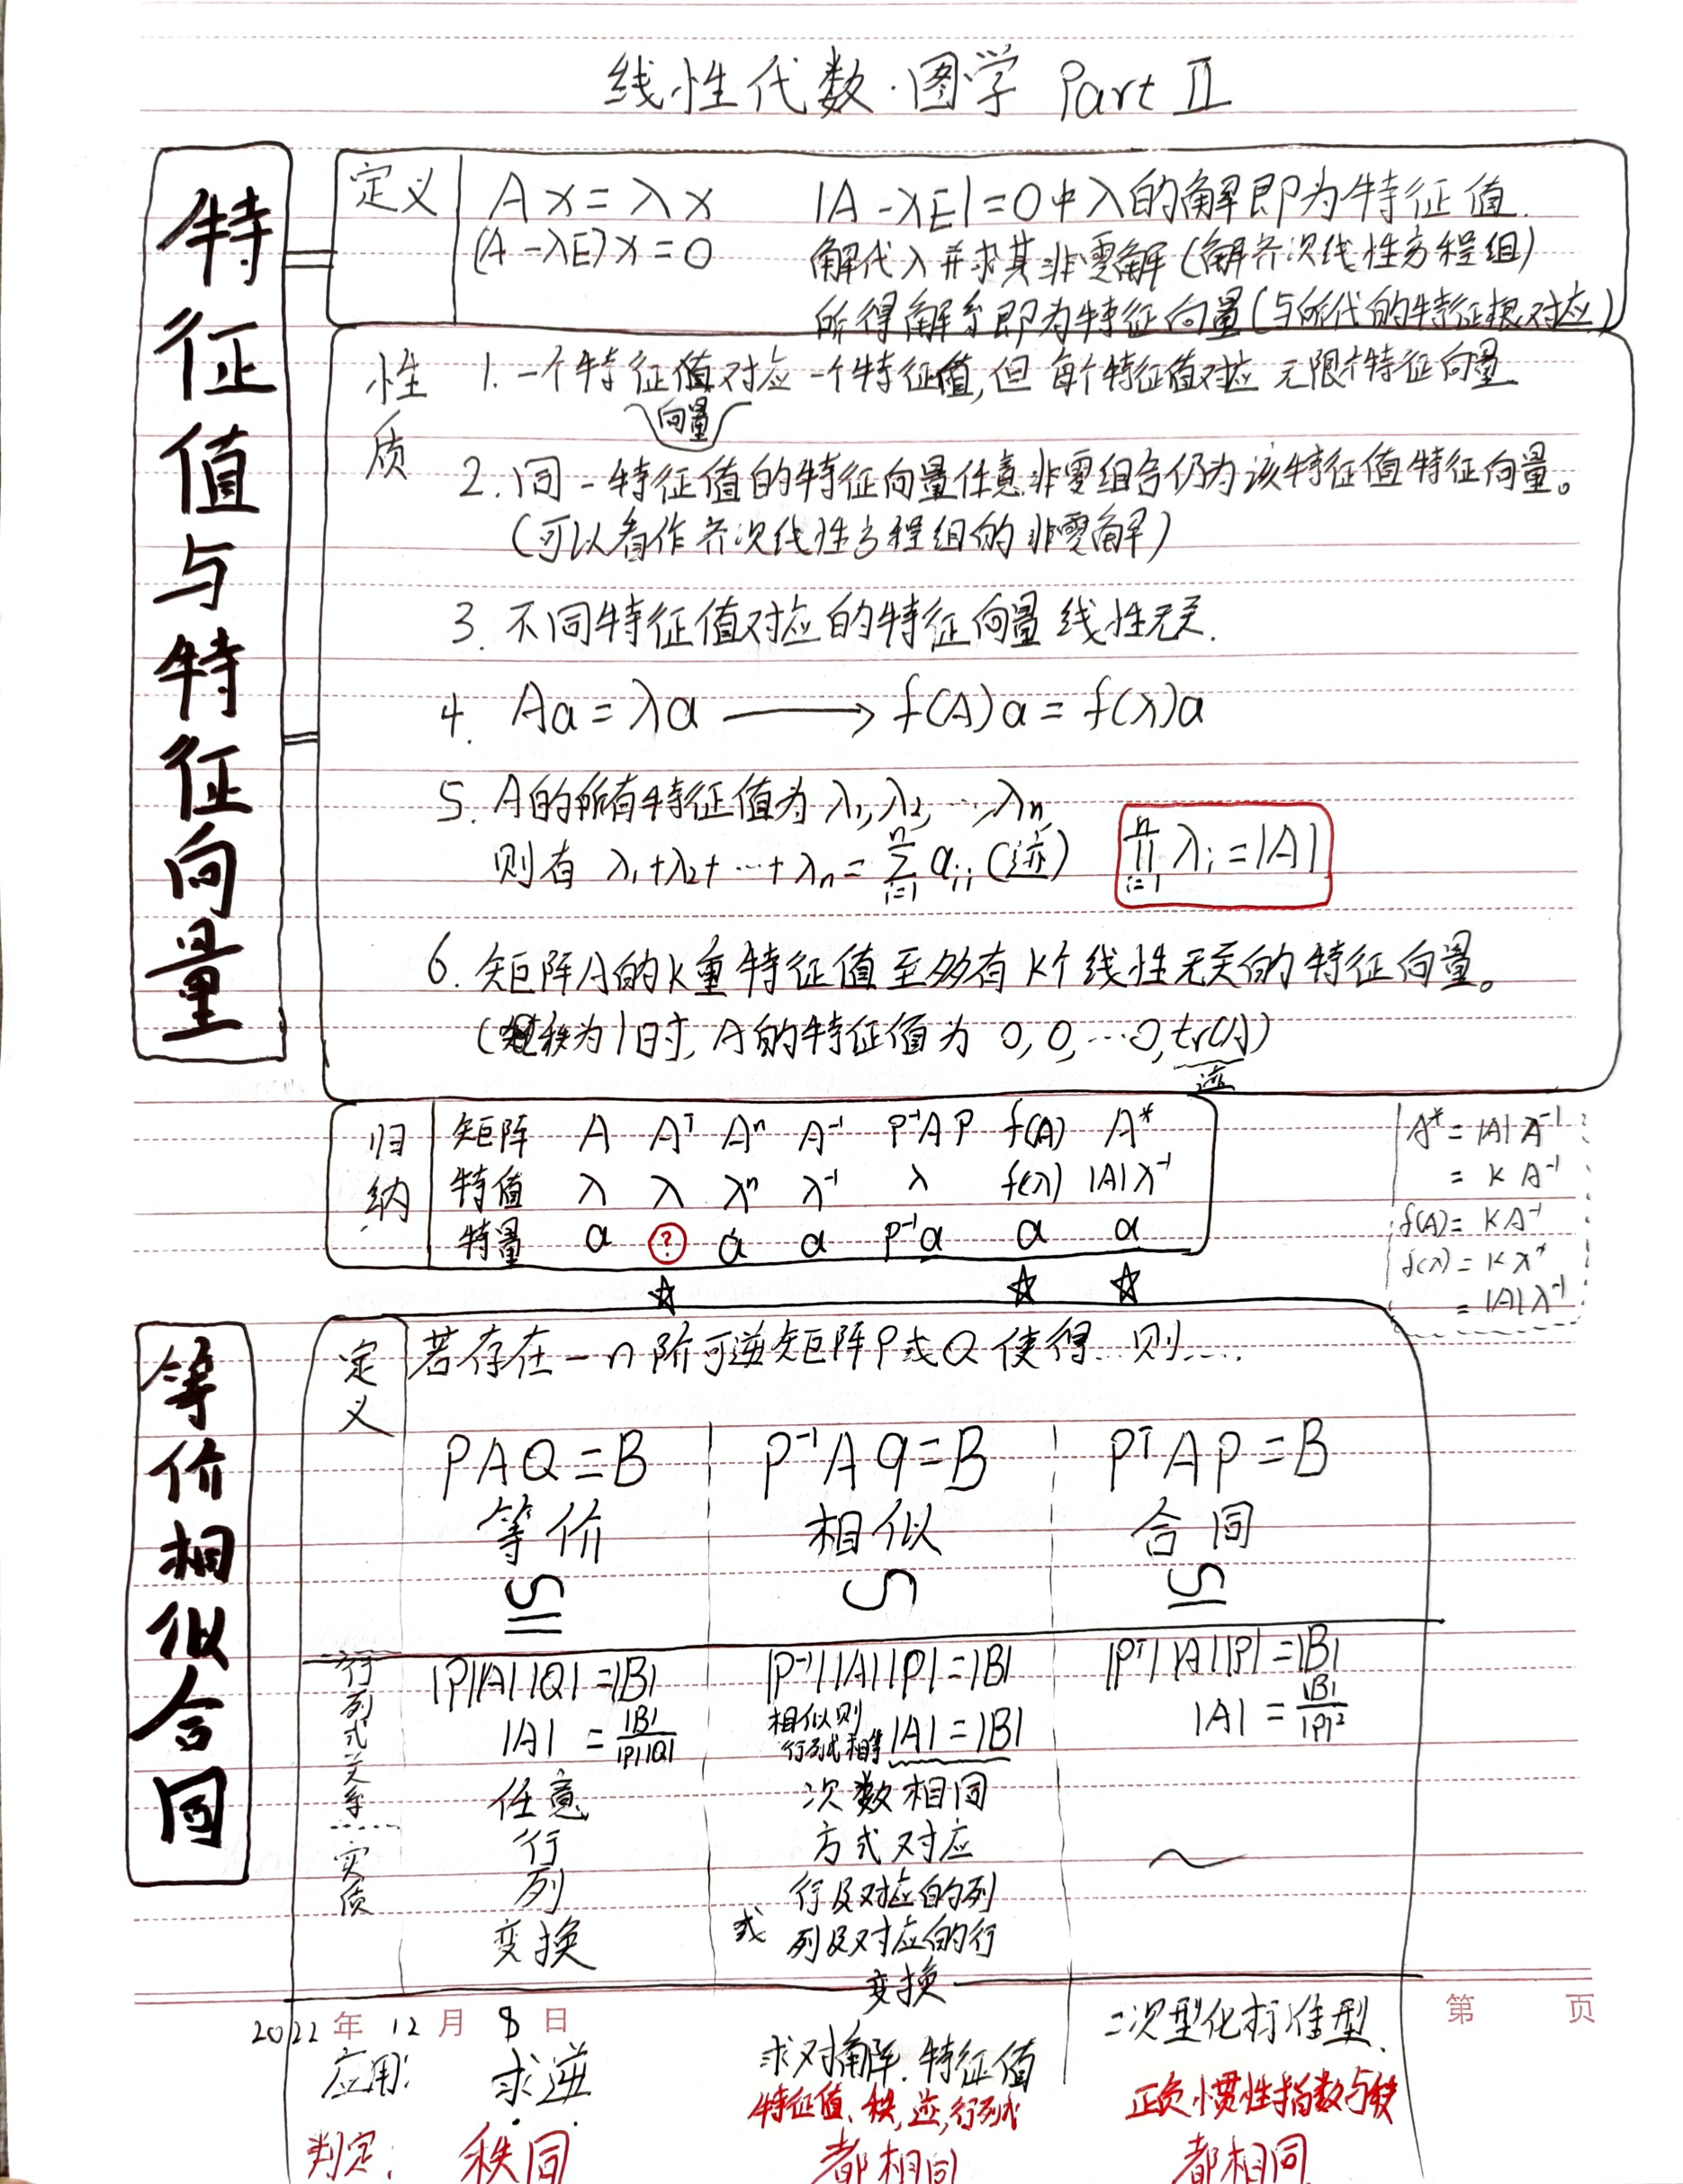 线性代数·图学 Part Ⅱ
特征值与特征向量
定义
Ax=λx
(A-λE)x=0
|A-λE|=0中λ的解即为特征值.
解代入并求其非零解(解齐次线性方程组)
所得解系即为特征向量(与所代的特征根对应)
性质
1. 一个特征值对应一个特征值,但每个特征值对应无限个特征向量
向量
2.同一特征值的特征向量任意非零组合仍为该特征值特征向量。
(可以看作齐次线性方程组的非零解)
3. 不同特征值对应的特征向量线性无关.
4. Aα=λα ⟶ f(A)α=f(λ)α
5. A的所有特征值为λ₁,λ₂,…,λn,
则有 λ₁+λ₂+…+λn=∑ⁿᵢ₌₁aᵢᵢ(迹) ∏ⁿᵢ₌₁λᵢ=|A|
6. 矩阵A的K重特征值至多有K个线性无关的特征向量。
(秩为1时, A的特征值为 0,0,…0,tr(A))
迹
归纳
矩阵 A Aᵀ Aⁿ A⁻¹ P⁻¹AP f(A) A*
特值 λ λ λⁿ λ⁻¹ λ f(λ) |A|λ⁻¹
特量 α ? α α P⁻¹α α α
☆ ☆ ☆
A*=|A|A⁻¹
=KA⁻¹
f(A)=KA⁻¹
f(λ)=Kλ*
=|A|λ⁻¹
等价相似合同
定义
若存在一n阶可逆矩阵P或Q使得…则….
PAQ=B P⁻¹Aq=B PᵀAP=B
等价 相似 合同
行列式关系
|P||A||Q|=|B| |P⁻¹||A||P|=|B| |Pᵀ||A||P|=|B|
|A|=|B|/|P||Q| 相似则行列式相等|A|=|B| |A|=|B|/|P|²
实质
任意
行
列
变换
次数相同
方式对应
行及对应的列
或 列及对应的行
变换
~
2022年12月8日
第 页
应用: 求逆 求对角阵.特征值 二次型化标准型.
判定: 秩同
特征值、秩,迹,行列式
都相同
正负惯性指数与秩
都相同